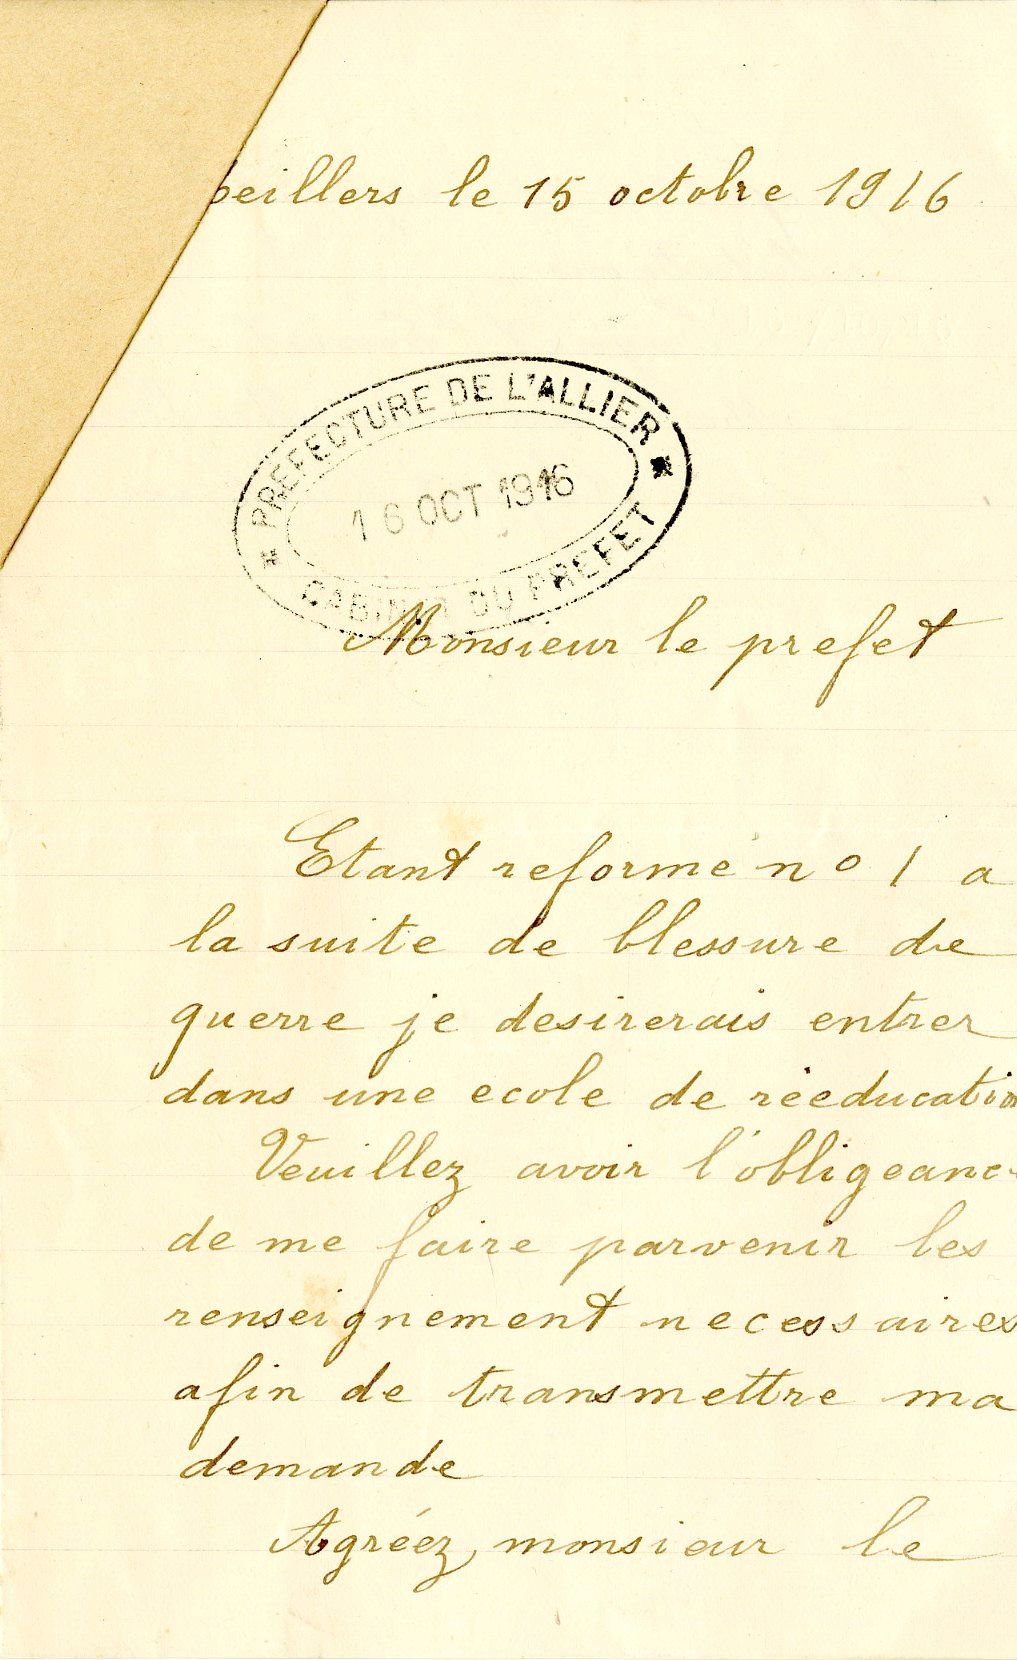 beillers le 15 octobre 1916
* PREFECTURE DE L'ALLIER *
16 OCT 1916
CABINET DU PREFET
Monsieur le prefet
Etant reformé n o 1 a
la suite de blessure de
guerre je desirerais entrer
dans une ecole de réeducation
Veuillez avoir l'obligeance
de me faire parvenir les
renseignement necessaires
afin de transmettre ma
demande
Agréez, monsieur le